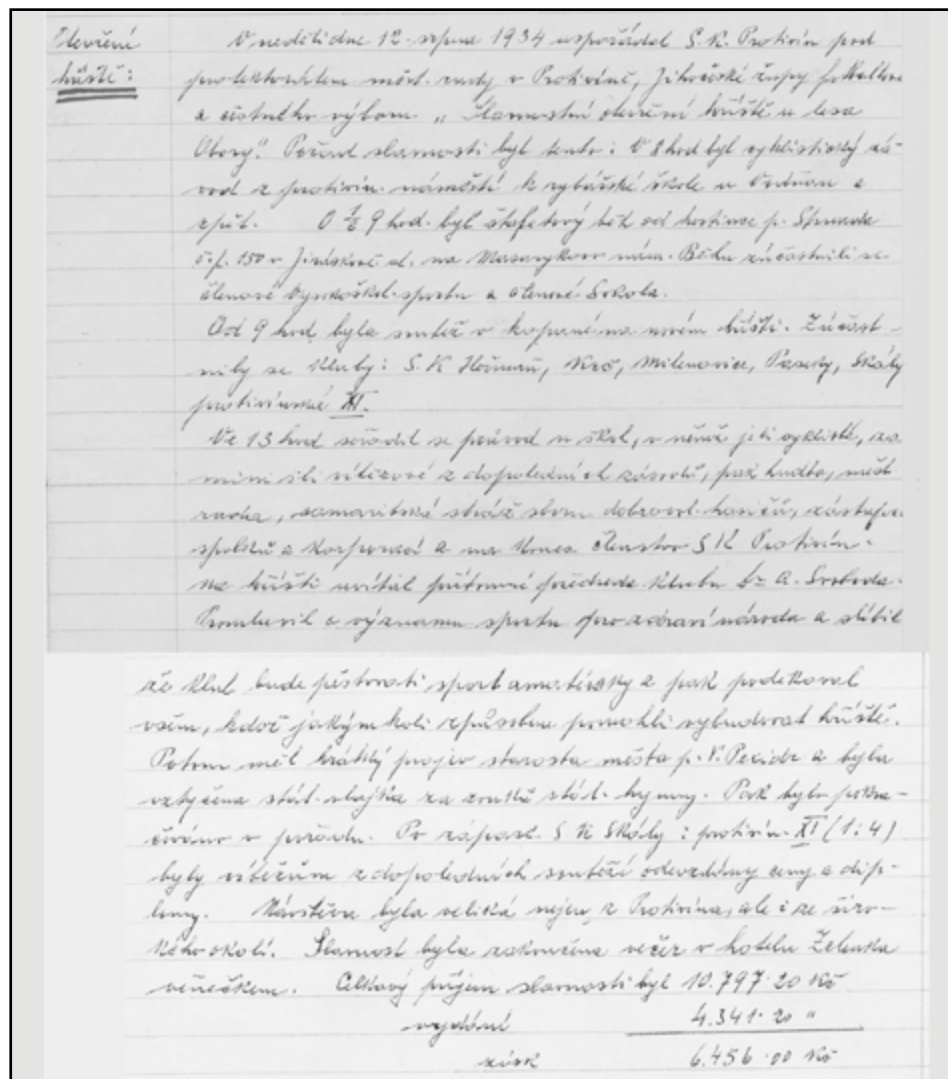 Otevření
hřiště:
V neděli dne 12. srpna 1934 uspořádal S. K. Protivín pod
protektorátem měst. rady v Protivíně, Jihočeské župy footballové
a čestného výboru „Slavnostní otevření hřiště u lesa
Obory". Pořad slavnosti byl tento: V 8 hod byl cyklistický zá-
vod z protivín. náměstí k rybářské škole u Vodňan a
zpět. O ½ 9 hod. byl štafetový běh od hostince p.
č.p. 150 v Jiráskově ul. na Masarykovo nám. Běhu zúčastnili se
členové vysokoškol. sportu a členové Sokola.
Od 9 hod. byla soutěž v kopané na novém hřišti. Zúčast-
nily se kluby: S. K. Heřmaň, Krč, Milenovice, Paseky, Skály
protivínská XI.
Ve 13 hod seřadil se průvod u škol, v němž jeli cyklisté, za
nimi šli vítězové z dopoledních závodů, pak hudba, měst.
rada, samaritská stráž sboru dobrovol. hasičů, zástupci
spolků a korporací a na konec členstvo S K Protivín.
Na hřišti uvítal přítomné předseda klubu br. A. Svoboda.
Promluvil o významu sportu pro zdraví národa a slíbil
že klub bude pěstovati sport amatérsky a pak poděkoval
všem, kdož jakýmkoli způsobem pomohli vybudovat hřiště.
Potom měl krátký projev starosta města p. V. a byla
vztyčena stát. vlajka za zvuků stát. hymny. Pak bylo pokra-
čováno v pořadu. Po zápase S K Skály : protivín. XI (1:4)
byly vítězům z dopoledních soutěží odevzdány ceny a dip-
lomy. Návštěva byla veliká nejen z Protivína, ale i ze širo-
kého okolí. Slavnost byla zakončena večer v hotelu Zelenka
věnečkem. Celkový příjem slavnosti byl 10.797.20 Kč
vydání 4.341.20 "
zisk 6.456.00 Kč